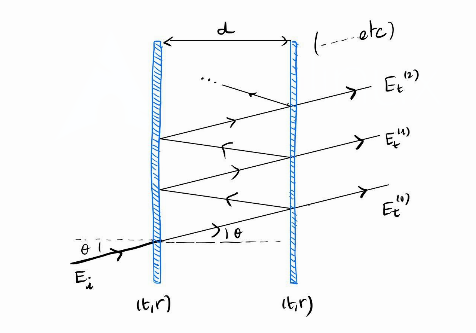 d
(----- etc)
...
E_t^(2)
E_t^(1)
E_t^(0)
θ
θ
E_i
(t,r)
(t,r)